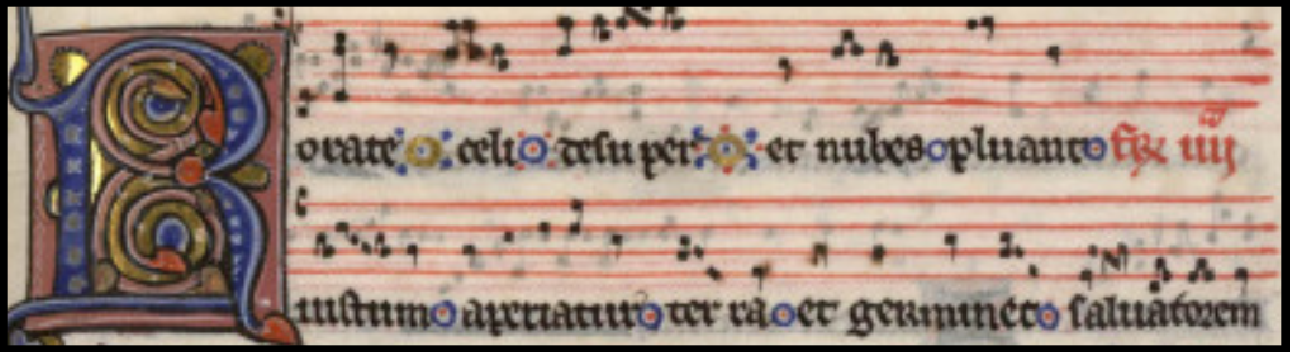 Rorate celi desu per et nubes pluant iiij
iustum aperiatur ter ra et germinet saluatorem